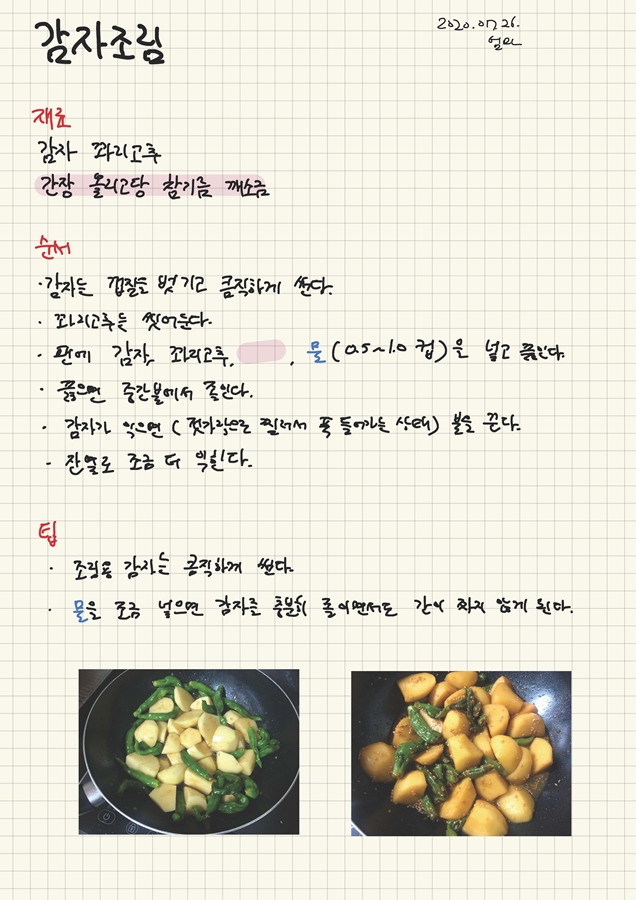 감자조림
2020.07.26.
재료
감자 꽈리고추
간장 올리고당 참기름 깨소금
순서
·감자는 껍질을 벗기고 큼직하게 썬다.
· 꽈리고추는 씻어둔다.
· 팬에 감자, 꽈리고추, , 물(0.5~1.0 컵)을 넣고 끓인다.
· 끓으면 중간불에서 졸인다.
· 감자가 익으면 (젓가락으로 찔러서 푹 들어가는 상태) 불을 끈다.
· 잔열로 조금 더 익힌다.
팁
· 조림용 감자는 큼직하게 썬다.
· 물을 조금 넣으면 감자를 충분히 졸이면서도 간이 짜지 않게 된다.